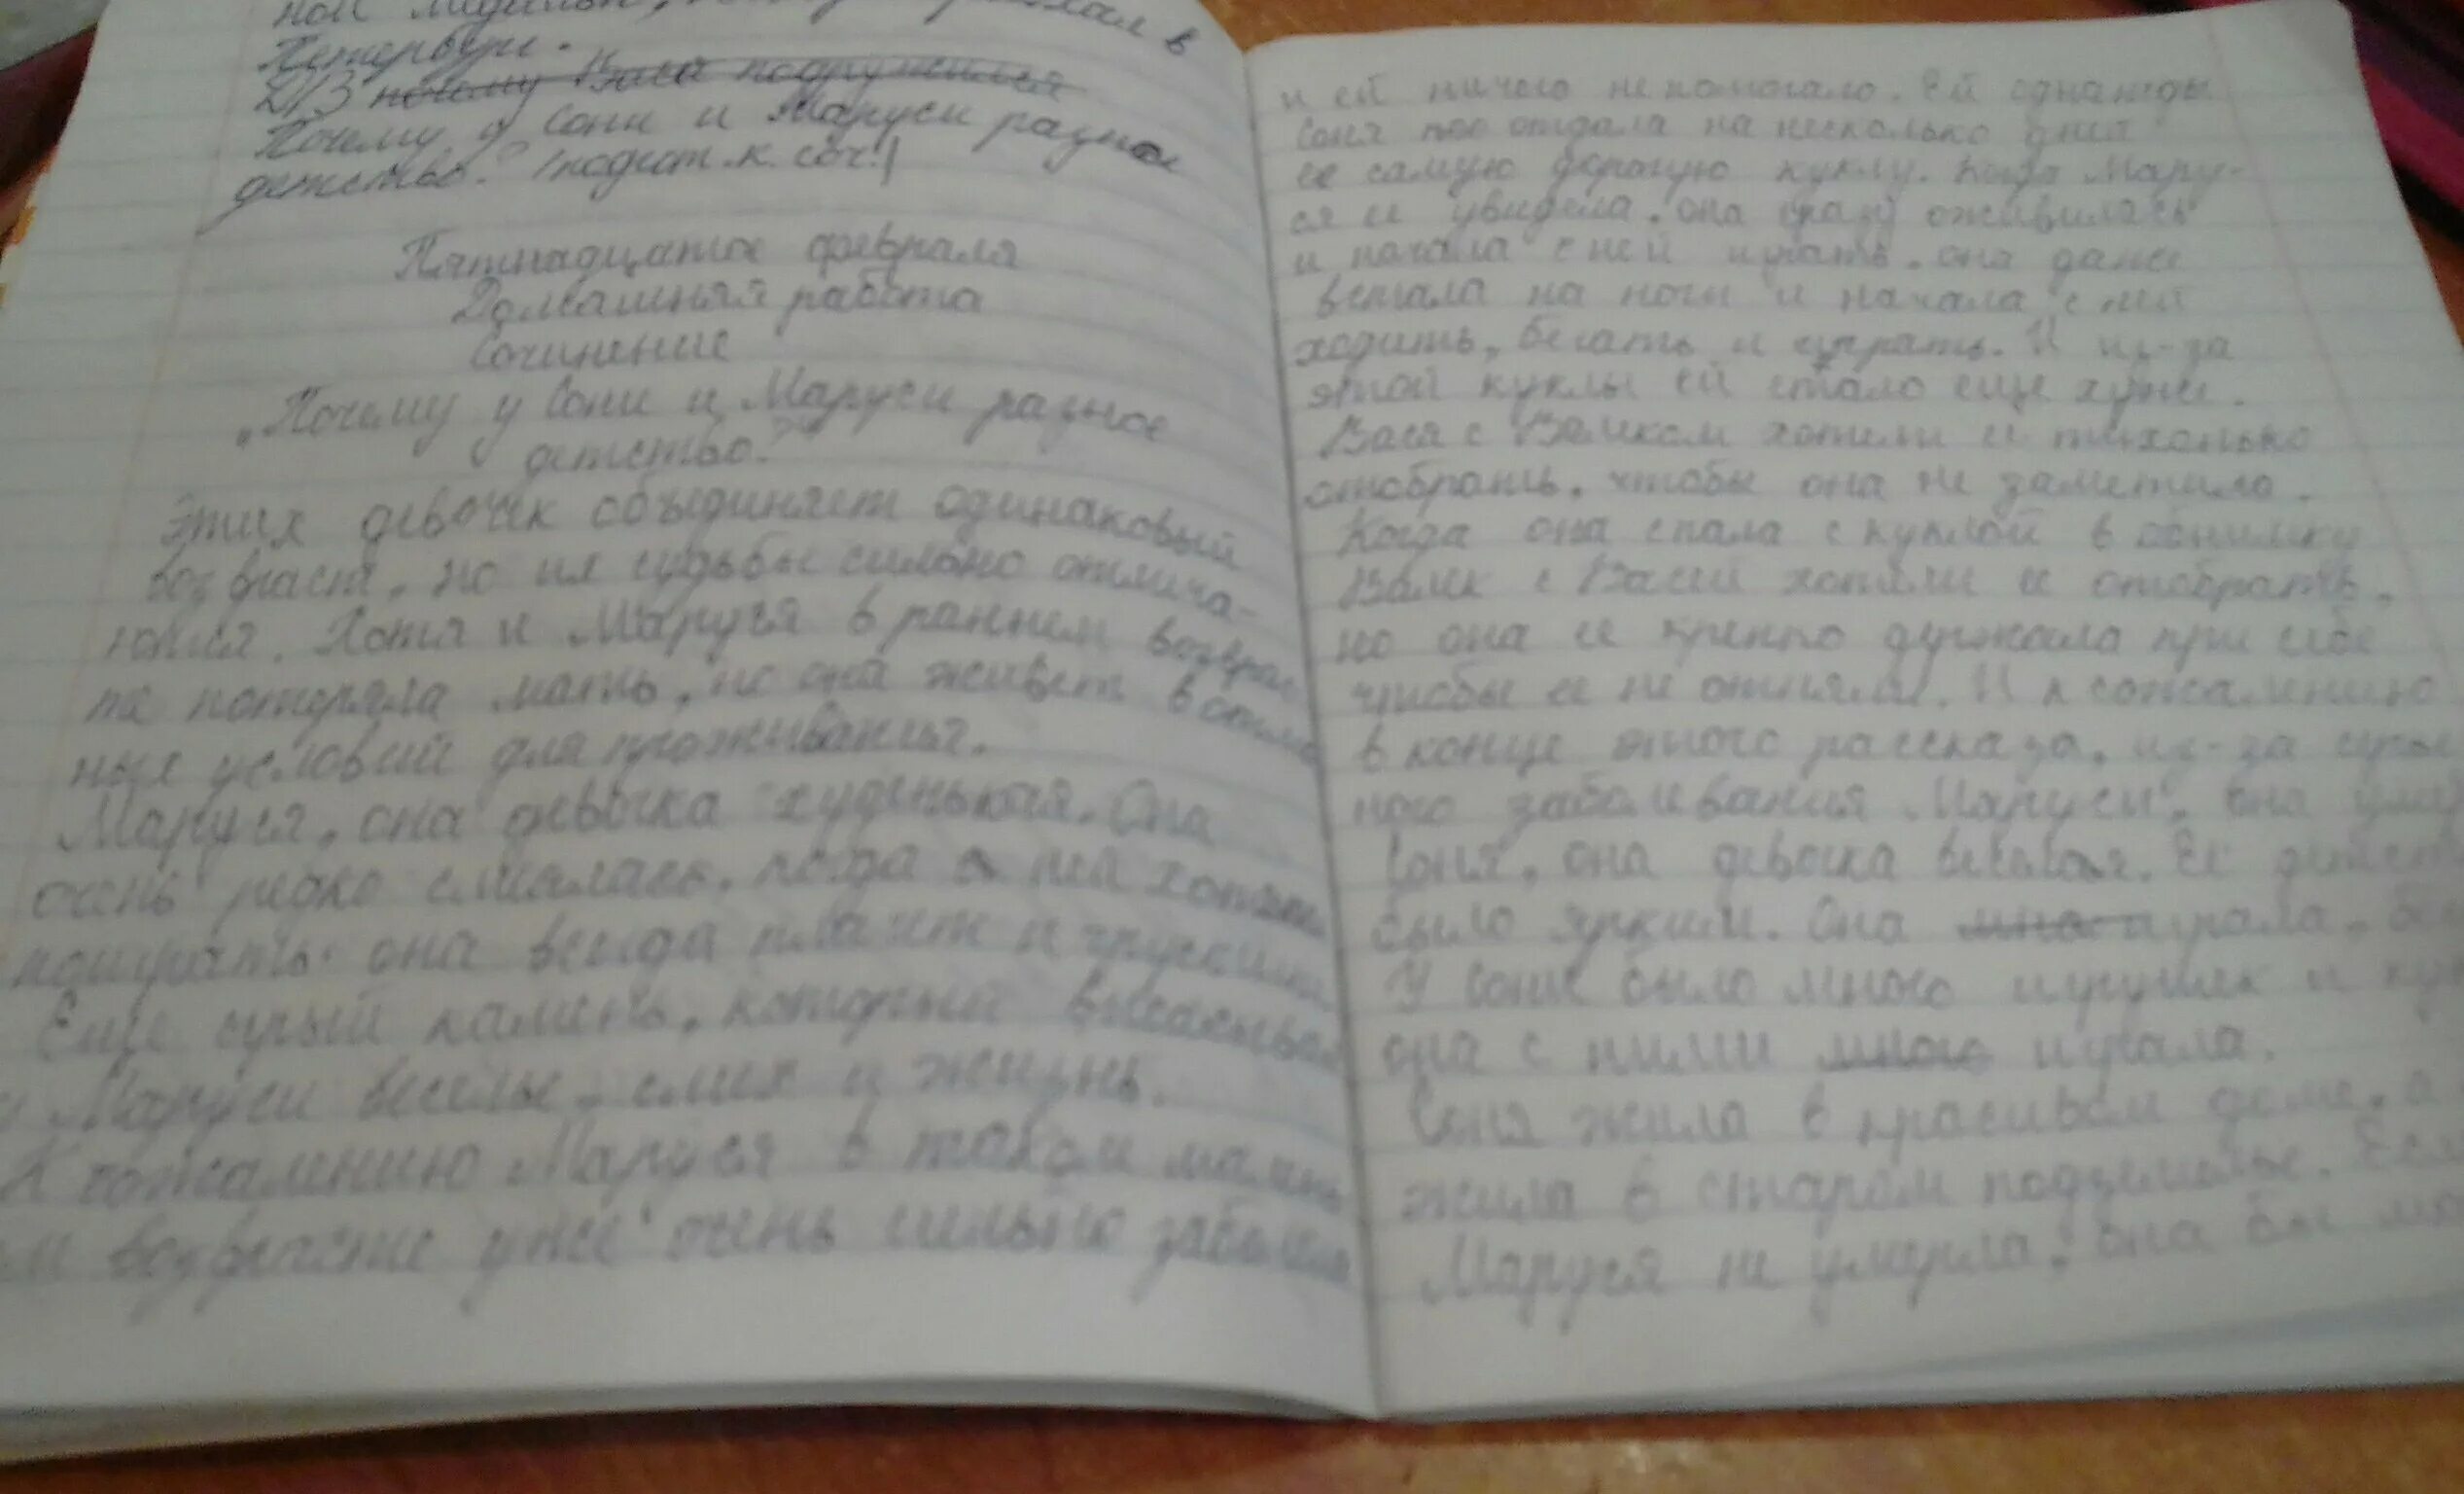 ной
в
Петербург.
Д/З почему Вася подружился
Почему у Сони и Маруси разное
детство? (подгот. к соч.)
Пятнадцатое февраля
Домашняя работа
Сочинение
„Почему у Сони и Маруси разное
детство?"
Этих девочек объединяет одинаковый
возвраст, но их судьбы сильно отлича-
ются. Хотя и Маруся в раннем возврас
те потеряла мать, но она живет в
ных условий для проживания.
Маруся, она девочка худенькая. Она
очень редко смеялась, когда с ней хотели
поиграть. она всегда плачет и
Еще серый камень, который высасывал
у Маруси веселье, смех и жизнь.
К сожалению Маруся в таком мален
ом возврасте уже очень сильно заболела
и ей ничего не помогало. Ей однажды
Соня отдала на несколько дней
ее самую дорогую куклу. Когда Мару-
ся ее увидела, она сразу оживилась
и начала с ней играть. она даже
встала на ноги и начала с ней
ходить, бегать и играть. И из-за
этой куклы ей стало еще хуже.
Вася с Валиком хотели ее тихонько
отобрать, чтобы она не заметила.
Когда она спала с куклой в обнимку
Валик с Васей хотели ее отобрать,
но она ее крепко держала при себе
чтобы ее не отняли. И к сожалению
в конце этого рассказа, из-за
ного заболивания Маруси, она
Соня, она девочка веселая. Ее детст
было ярким. Она мно играла,
У Сони было много игрушек и
она с ними много играла.
Соня жила в красивом доме, а
жила в старом подземелье. Если
Маруся не умерла, она бы